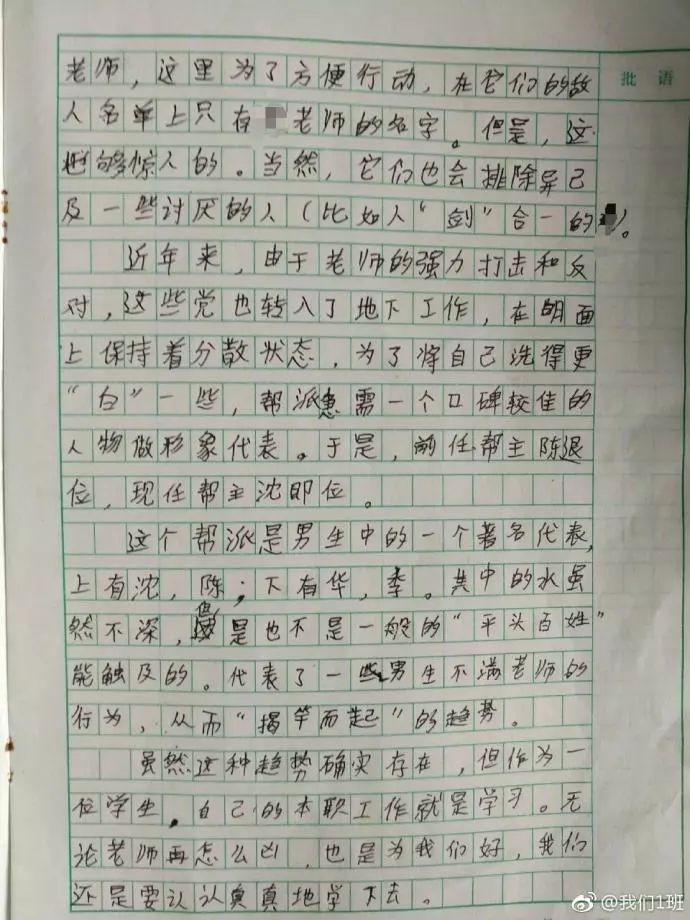 批语
老师，这里为了方便行动，在它们的敌
人名单上只有老师的名字。但是，这
已够惊人的。当然，它们也会排除异己
及一些讨厌的人（比如人“剑”合一的）。
近年来，由于老师的强力打击和反
对，这些党也转入了地下工作，在明面
上保持着分散状态，为了将自己洗得更
“白”一些，帮派急需一个口碑较佳的
人物做形象代表。于是，前任帮主陈退
位，现任帮主沈即位。
这个帮派是男生中的一个著名代表，
上有沈，陈；下有华，季。其中的水虽
然不深，但是也不是一般的“平头百姓”
能触及的。代表了一些男生不满老师的
行为，从而“揭竿而起”的趋势。
虽然这种趋势确实存在，但作为一
位学生，自己的本职工作就是学习。无
论老师再怎么凶，也是为我们好，我们
还是要认认真真地学下去。
@我们1班